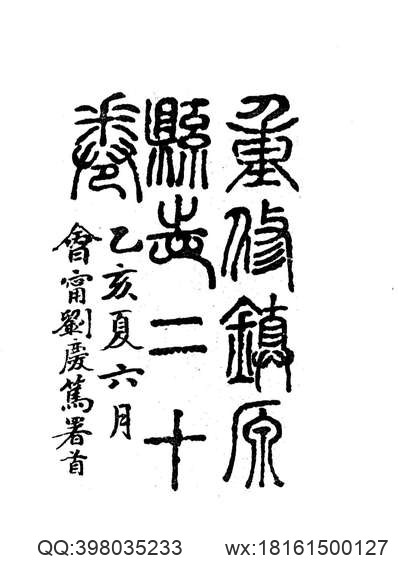 重修鎮原
縣志二十
卷
乙亥夏六月
會甯劉慶篤署首
QQ:398035233 wx:18161500127